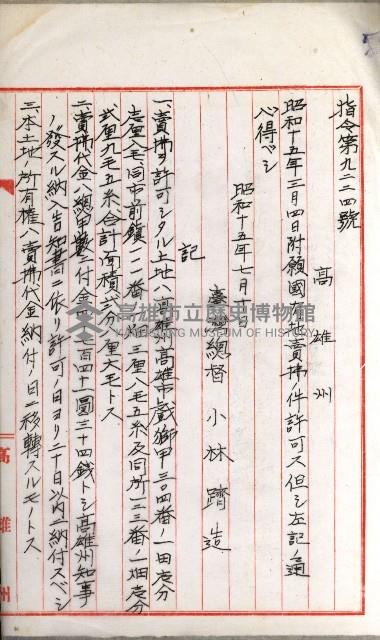 指令第九二二四號
高雄州
昭和十五年三月四日附願國有地賣拂ノ件許可ス但シ左記ノ通
心得ベシ
昭和十五年七月十日
臺灣總督 小林躋造
記
一、賣拂ヲ許可シタル土地ハ高雄州高雄市戲獅甲三〇四番ノ一田
厘八毛、同市前鎮一一番ノ一畑三厘八毛五糸及同所一三番ノ一畑
貳厘九毛五糸合計面積
二、賣拂代金ハ總甲數ニ付金 百四十一圓三十四錢トシ高雄州知事
ノ發スル納入告知書ニ依リ許可ノ日ヨリ二十日以内ニ納付スベシ
三、本土地ノ所有權ハ賣拂代金納付ノ日ニ移轉スルモノトス
高雄州
高雄市立歷史博物館